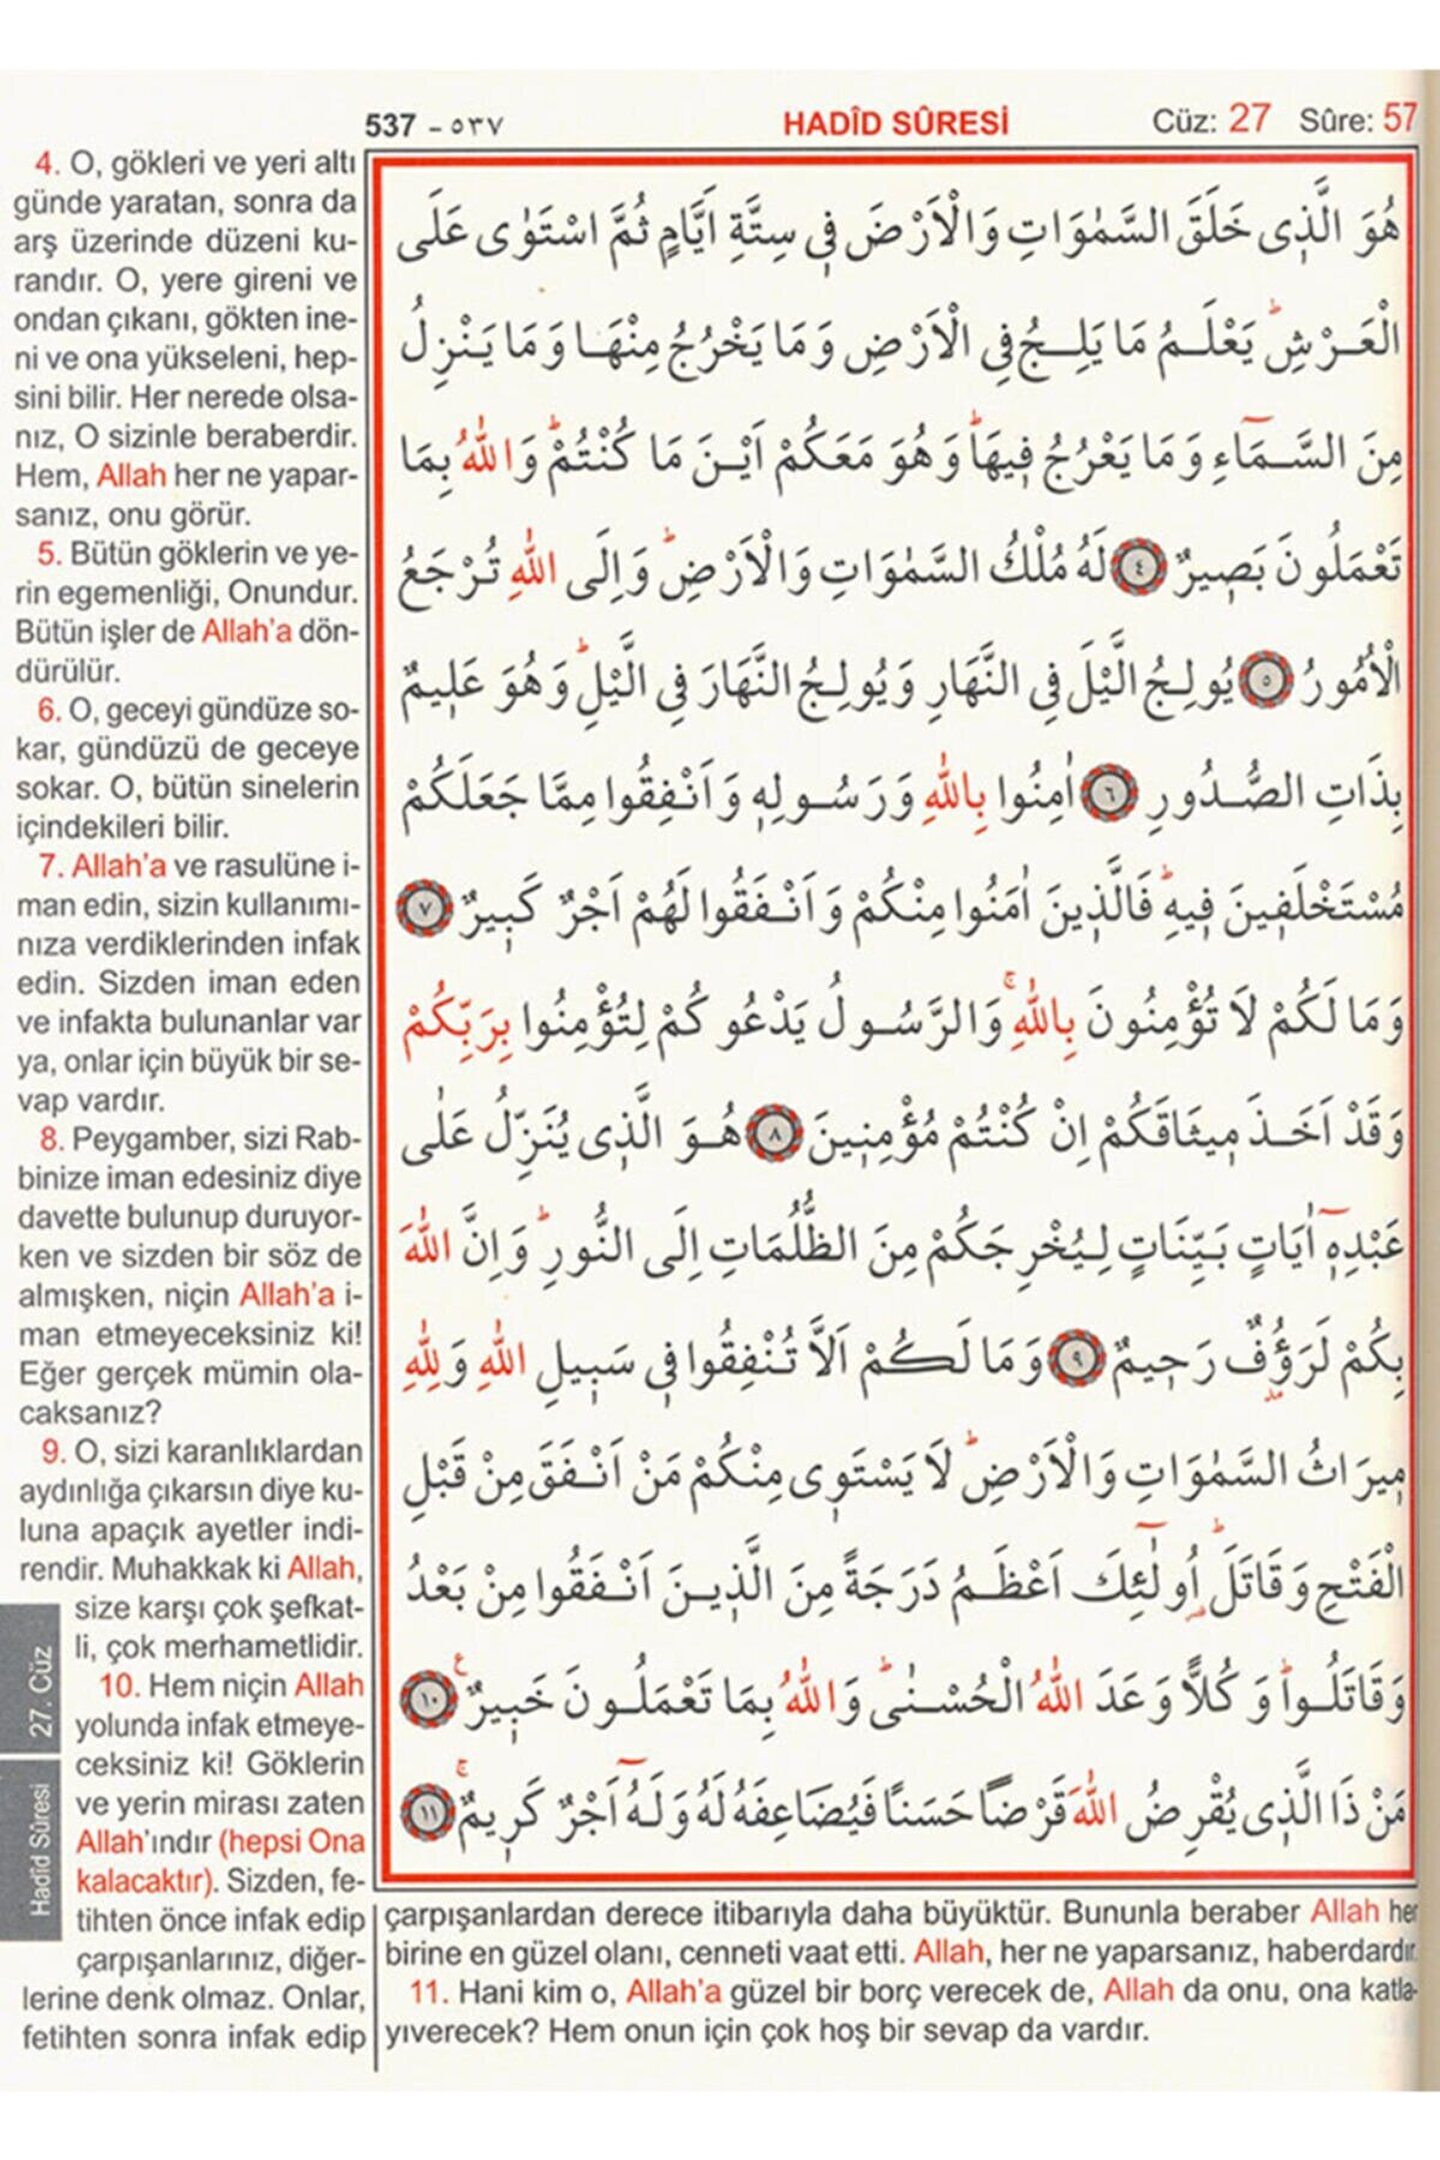 537 - ٥٣٧ HADÎD SÛRESİ Cüz: 27 Sûre: 57
هُوَ الَّذ۪ى خَلَقَ السَّمٰوَاتِ وَالْاَرْضَ ف۪ى سِتَّةِ اَيَّامٍ ثُمَّ اسْتَوٰى عَلَى
الْعَرْشِۜ يَعْلَمُ مَا يَلِجُ فِى الْاَرْضِ وَمَا يَخْرُجُ مِنْهَا وَمَا يَنْزِلُ
مِنَ السَّمَٓاءِ وَمَا يَعْرُجُ ف۪يهَاۜ وَهُوَ مَعَكُمْ اَيْنَ مَا كُنْتُمْۜ وَاللّٰهُ بِمَا
تَعْمَلُونَ بَص۪يرٌ ﴿٤﴾ لَهُ مُلْكُ السَّمٰوَاتِ وَالْاَرْضِۜ وَاِلَى اللّٰهِ تُرْجَعُ
الْاُمُورُ ﴿٥﴾ يُولِجُ الَّيْلَ فِى النَّهَارِ وَيُولِجُ النَّهَارَ فِى الَّيْلِۜ وَهُوَ عَل۪يمٌ
بِذَاتِ الصُّدُورِ ﴿٦﴾ اٰمِنُوا بِاللّٰهِ وَرَسُولِه۪ وَاَنْفِقُوا مِمَّا جَعَلَكُمْ
مُسْتَخْلَف۪ينَ ف۪يهِۜ فَالَّذ۪ينَ اٰمَنُوا مِنْكُمْ وَاَنْفَقُوا لَهُمْ اَجْرٌ كَب۪يرٌ ﴿٧﴾
وَمَا لَكُمْ لَا تُؤْمِنُونَ بِاللّٰهِۚ وَالرَّسُولُ يَدْعُوكُمْ لِتُؤْمِنُوا بِرَبِّكُمْ
وَقَدْ اَخَذَ م۪يثَاقَكُمْ اِنْ كُنْتُمْ مُؤْمِن۪ينَ ﴿٨﴾ هُوَ الَّذ۪ى يُنَزِّلُ عَلٰى
عَبْدِه۪ٓ اٰيَاتٍ بَيِّنَاتٍ لِيُخْرِجَكُمْ مِنَ الظُّلُمَاتِ اِلَى النُّورِۜ وَاِنَّ اللّٰهَ
بِكُمْ لَرَؤُ۫فٌ رَح۪يمٌ ﴿٩﴾ وَمَا لَكُمْ اَلَّا تُنْفِقُوا ف۪ى سَب۪يلِ اللّٰهِ وَلِلّٰهِ
م۪يرَاثُ السَّمٰوَاتِ وَالْاَرْضِۜ لَا يَسْتَو۪ى مِنْكُمْ مَنْ اَنْفَقَ مِنْ قَبْلِ
الْفَتْحِ وَقَاتَلَۜ اُو۬لٰٓئِكَ اَعْظَمُ دَرَجَةً مِنَ الَّذ۪ينَ اَنْفَقُوا مِنْ بَعْدُ
وَقَاتَلُواۜ وَكُلًّا وَعَدَ اللّٰهُ الْحُسْنٰىۜ وَاللّٰهُ بِمَا تَعْمَلُونَ خَب۪يرٌ ﴿١٠﴾
مَنْ ذَا الَّذ۪ى يُقْرِضُ اللّٰهَ قَرْضًا حَسَنًا فَيُضَاعِفَهُ لَهُ وَلَهُٓ اَجْرٌ كَر۪يمٌۚ ﴿١١﴾
4. O, gökleri ve yeri altı
günde yaratan, sonra da
arş üzerinde düzeni ku-
randır. O, yere gireni ve
ondan çıkanı, gökten ine-
ni ve ona yükseleni, hep-
sini bilir. Her nerede olsa-
nız, O sizinle beraberdir.
Hem, Allah her ne yapar-
sanız, onu görür.
5. Bütün göklerin ve ye-
rin egemenliği, Onundur.
Bütün işler de Allah'a dön-
dürülür.
6. O, geceyi gündüze so-
kar, gündüzü de geceye
sokar. O, bütün sinelerin
içindekileri bilir.
7. Allah'a ve rasulüne i-
man edin, sizin kullanımı-
nıza verdiklerinden infak
edin. Sizden iman eden
ve infakta bulunanlar var
ya, onlar için büyük bir se-
vap vardır.
8. Peygamber, sizi Rab-
binize iman edesiniz diye
davette bulunup duruyor-
ken ve sizden bir söz de
almışken, niçin Allah'a i-
man etmeyeceksiniz ki!
Eğer gerçek mümin ola-
caksanız?
9. O, sizi karanlıklardan
aydınlığa çıkarsın diye ku-
luna apaçık ayetler indi-
rendir. Muhakkak ki Allah,
size karşı çok şefkat-
li, çok merhametlidir.
10. Hem niçin Allah
yolunda infak etmeye-
ceksiniz ki! Göklerin
ve yerin mirası zaten
Allah'ındır (hepsi Ona
kalacaktır). Sizden, fe-
tihten önce infak edip
çarpışanlarınız, diğer-
lerine denk olmaz. Onlar,
fetihten sonra infak edip
çarpışanlardan derece itibarıyla daha büyüktür. Bununla beraber Allah her
birine en güzel olanı, cenneti vaat etti. Allah, her ne yaparsanız, haberdardır.
11. Hani kim o, Allah'a güzel bir borç verecek de, Allah da onu, ona katla-
yıverecek? Hem onun için çok hoş bir sevap da vardır.
27. Cüz
Hadîd Sûresi